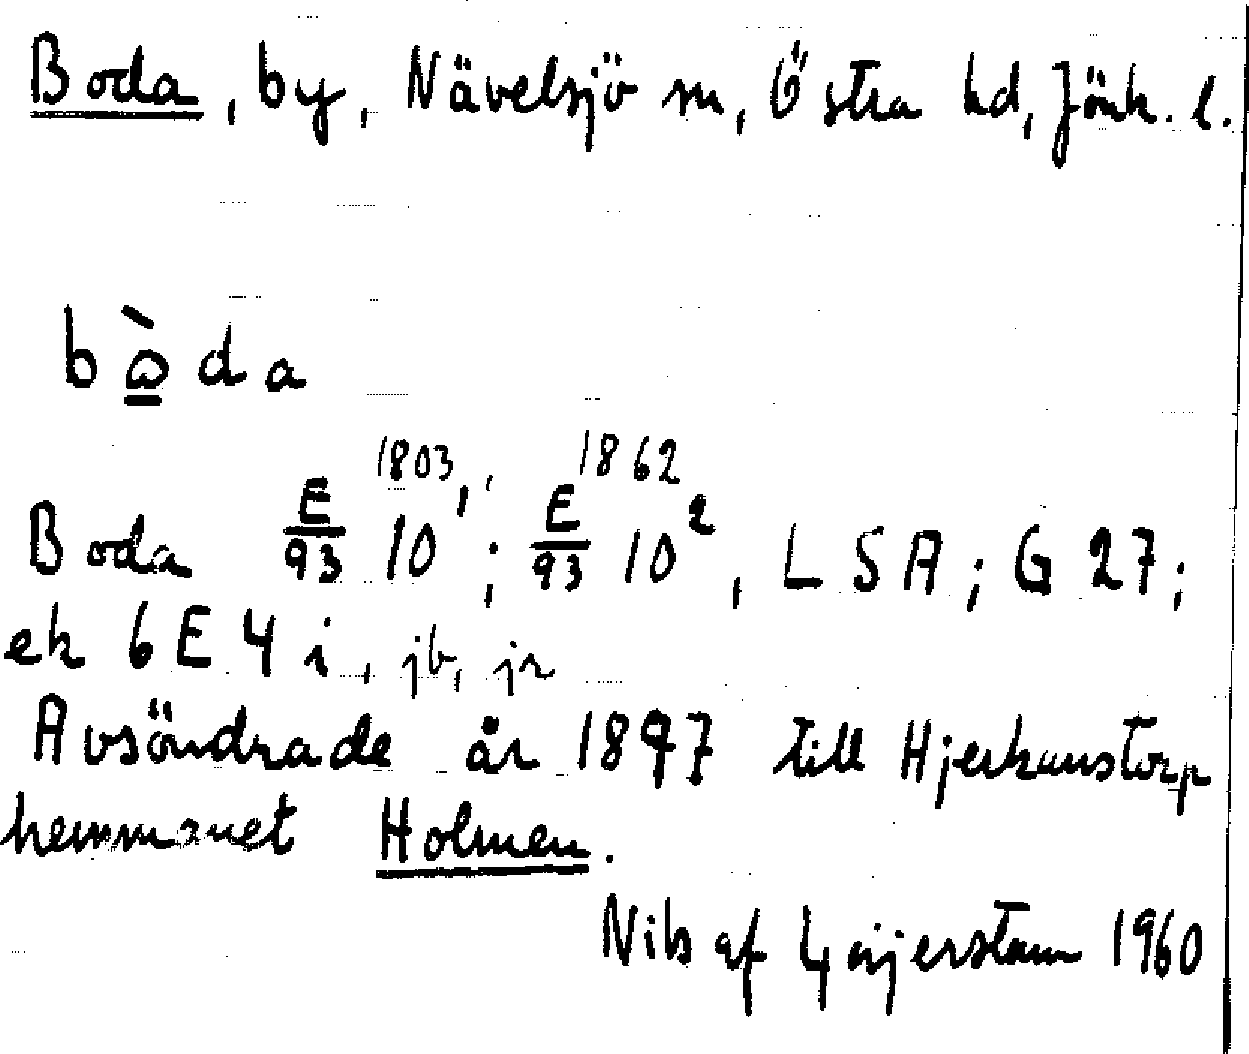 Boda, by, Nävelsjö sn, Östra hd, Jönk. l.
bò̱da
Boda E/93 10¹ 1803; E/93 10² 1862, LSA; G 27;
ek 6E4i, jb, jr
Avsöndrade år 1897 till Hjerkanstorp
hemmanet Holmen.
Nils af Geijerstam 1960